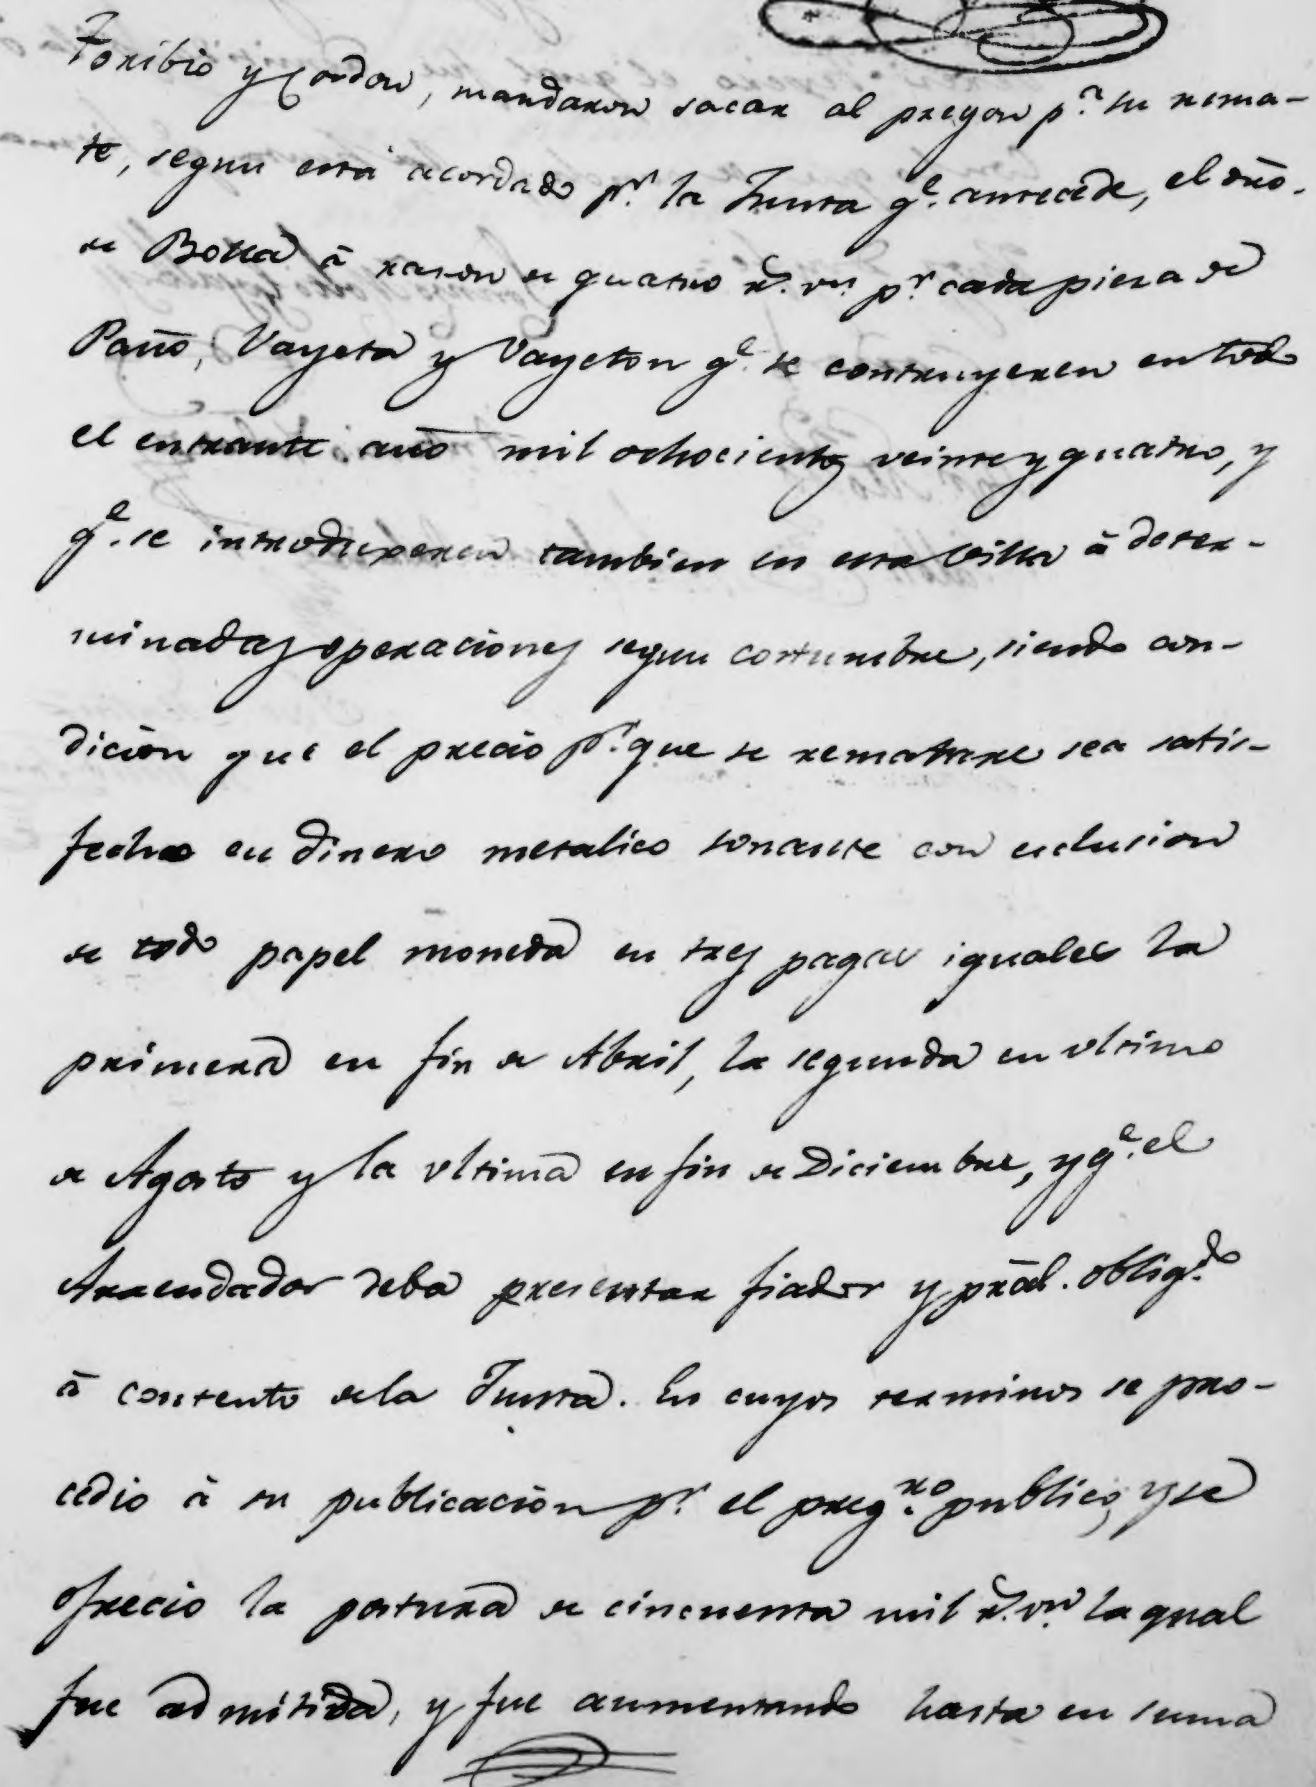 Toribio y Cordon, mandaron sacar al pregon p.ª su rema-
te, segun está acordado p.r la Junta q.e antecede, el dño.
de Bolla à razon de quatro r.s v.n p.r cada pieza de
Paño, Vayeta y Vayeton q.e se construyeren en todo
el entrante año mil ochocientos veinte y quatro, y
q.e se introdugeren tambien en esta Villa à deter-
minadas operaciones segun costumbre, siendo con-
dicion que el precio p.r que se rematare sea satis-
fecho en dinero metalico sonante con exclusion
de todo papel moneda en tres pagas iguales la
primera en fin de Abril, la segunda en ultimo
de Agosto y la ultima en fin de Diciembre, y q.e el
Arrendador deba presentar fiador y prãl. oblig.do
à contento de la Junta. En cuyos terminos se pro-
cedio à su publicacion p.r el preg.ro publico, y se
ofrecio la postura de cincuenta mil r.s v.n la qual
fue admitida, y fue aumentando hasta en suma